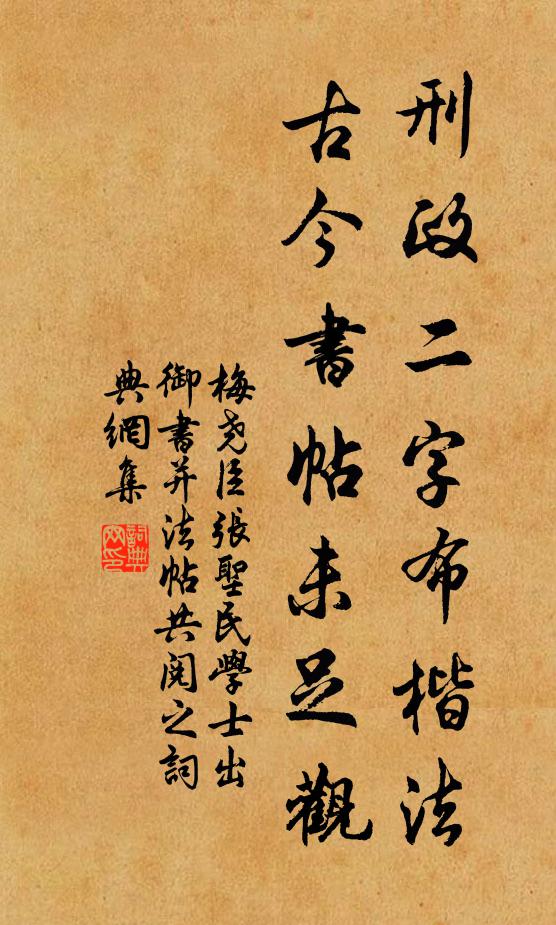 刑政二字布楷法
古今書帖未足觀
梅尧臣張聖民學士出
御書并法帖共閱之詞
典網集
詞典
网印